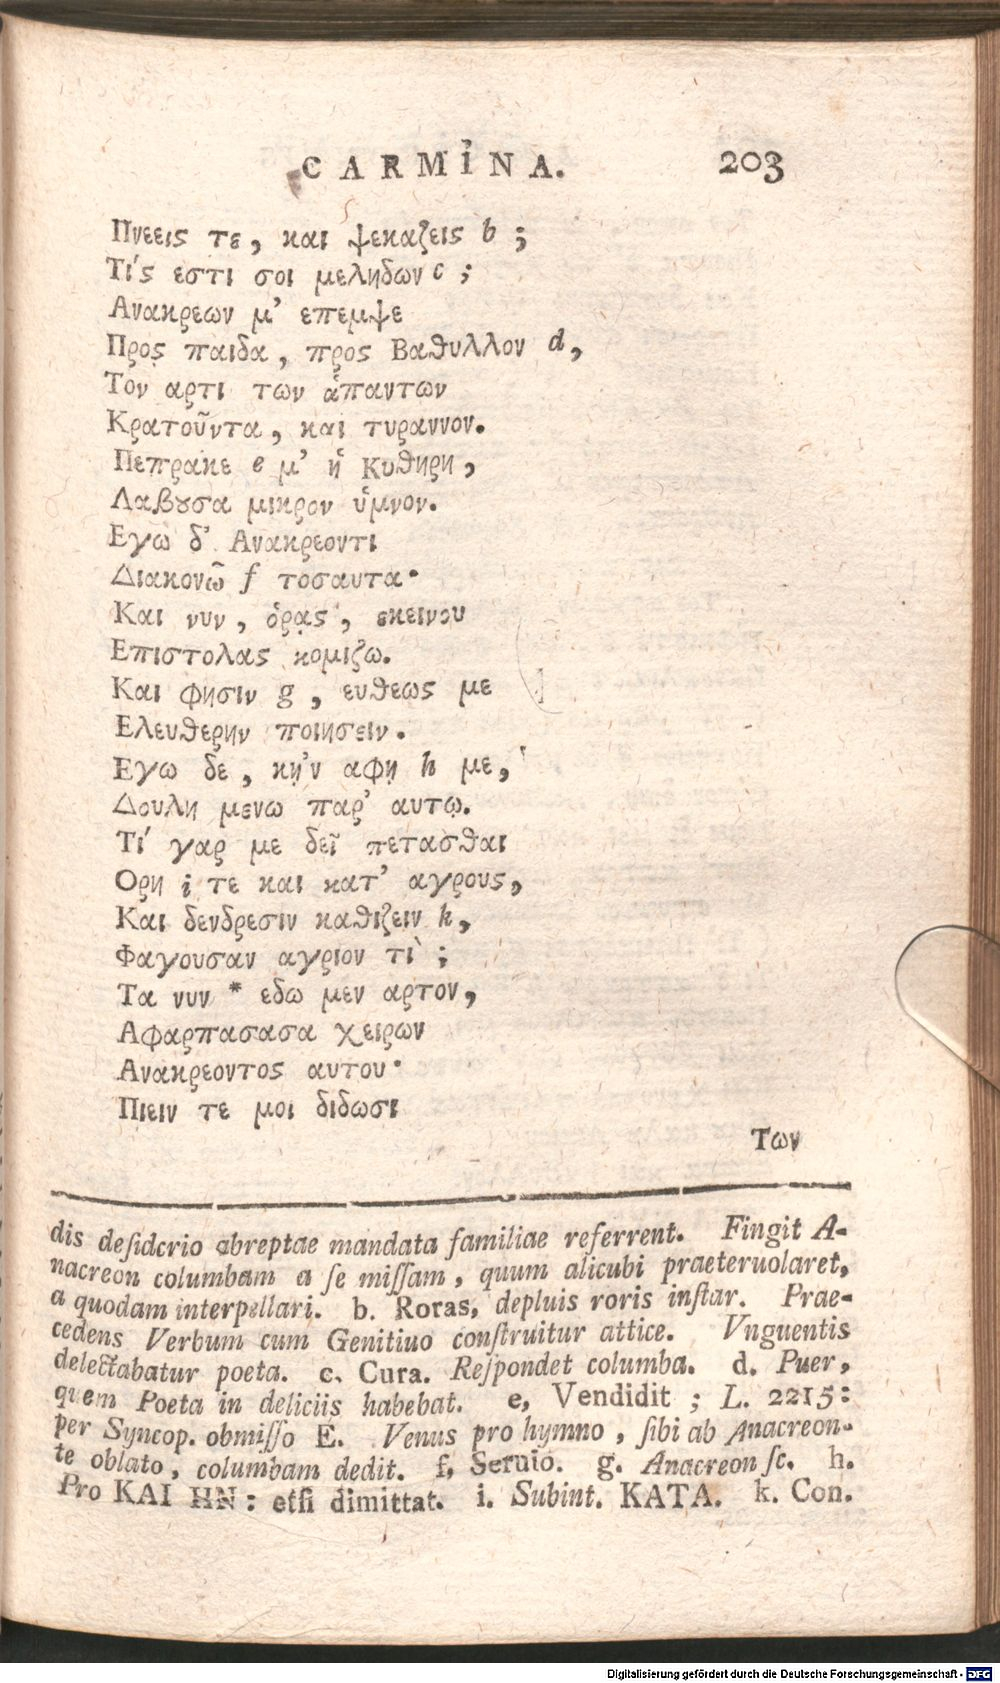 CARMINA. 203
Πνεεις τε, και ψεκαζεις b ;
Τί́ς εστι σοι μεληδων c ;
Ανακρεων μ’ επεμψε
Προς παιδα, προς Βαθυλλον d,
Τον αρτι των ἁπαντων
Κρατοῦντα, και τυραννον.
Πεπρακε e μ’ ἡ Κυθηρη,
Λαβȣσα μικρον ὑμνον.
Εγω δ’ Ανακρεοντι
Διακονῶ f τοσαυτα·
Και νυν, ὁρᾳς, εκεινου
Επιστολας κομιζω.
Και φησιν g, ευθεως με
Ελευθερην ποιησειν.
Εγω δε, κῃ’ν αφῃ h με,
Δουλη μενω παρ’ αυτῳ.
Τί γαρ με δεῖ πετασθαι
Ορη i τε και κατ’ αγρους,
Και δενδρεσιν καθιζειν k,
Φαγουσαν αγριον τὶ ;
Τα νυν * εδω μεν αρτον,
Αφαρπασασα χειρων
Ανακρεοντος αυτου·
Πιειν τε μοι διδωσι
Των
dis deſiderio abreptae mandata familiae referrent. Fingit A-
nacreon columbam a ſe miſſam, quum alicubi praeteruolaret,
a quodam interpellari. b. Roras, depluis roris inſtar. Prae-
cedens Verbum cum Genitiuo conſtruitur attice. Vnguentis
delectabatur poeta. c. Cura. Reſpondet columba. d. Puer,
quem Poeta in deliciis habebat. e, Vendidit ; L. 2215:
per Syncop. obmiſſo E. Venus pro hymno, ſibi ab Anacreon-
te oblato, columbam dedit. f, Seruio. g. Anacreon ſc. h.
Pro ΚΑΙ ΗΝ: etſi dimittat. i. Subint. ΚΑΤΑ. k. Con.
Digitalisierung gefördert durch die Deutsche Forschungsgemeinschaft - DFG